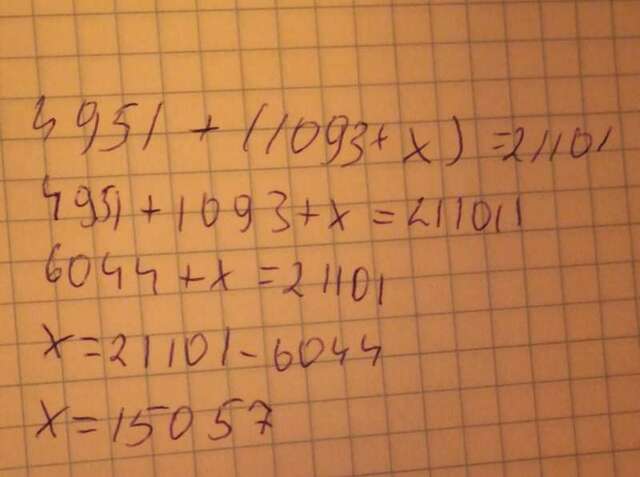 4951 + (1093+x) = 21101
4951 + 1093 + x = 211011
6044 + x = 21101
x = 21101 - 6044
x = 15057